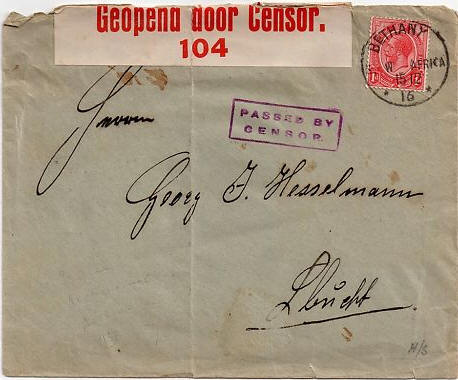 Geopend door Censor.
104
BETHANY
S. W. AFRICA
15
16
1d 1d
PASSED BY
CENSOR.
Herrn
Georg J. Hesselmann
Lbucht
A/S